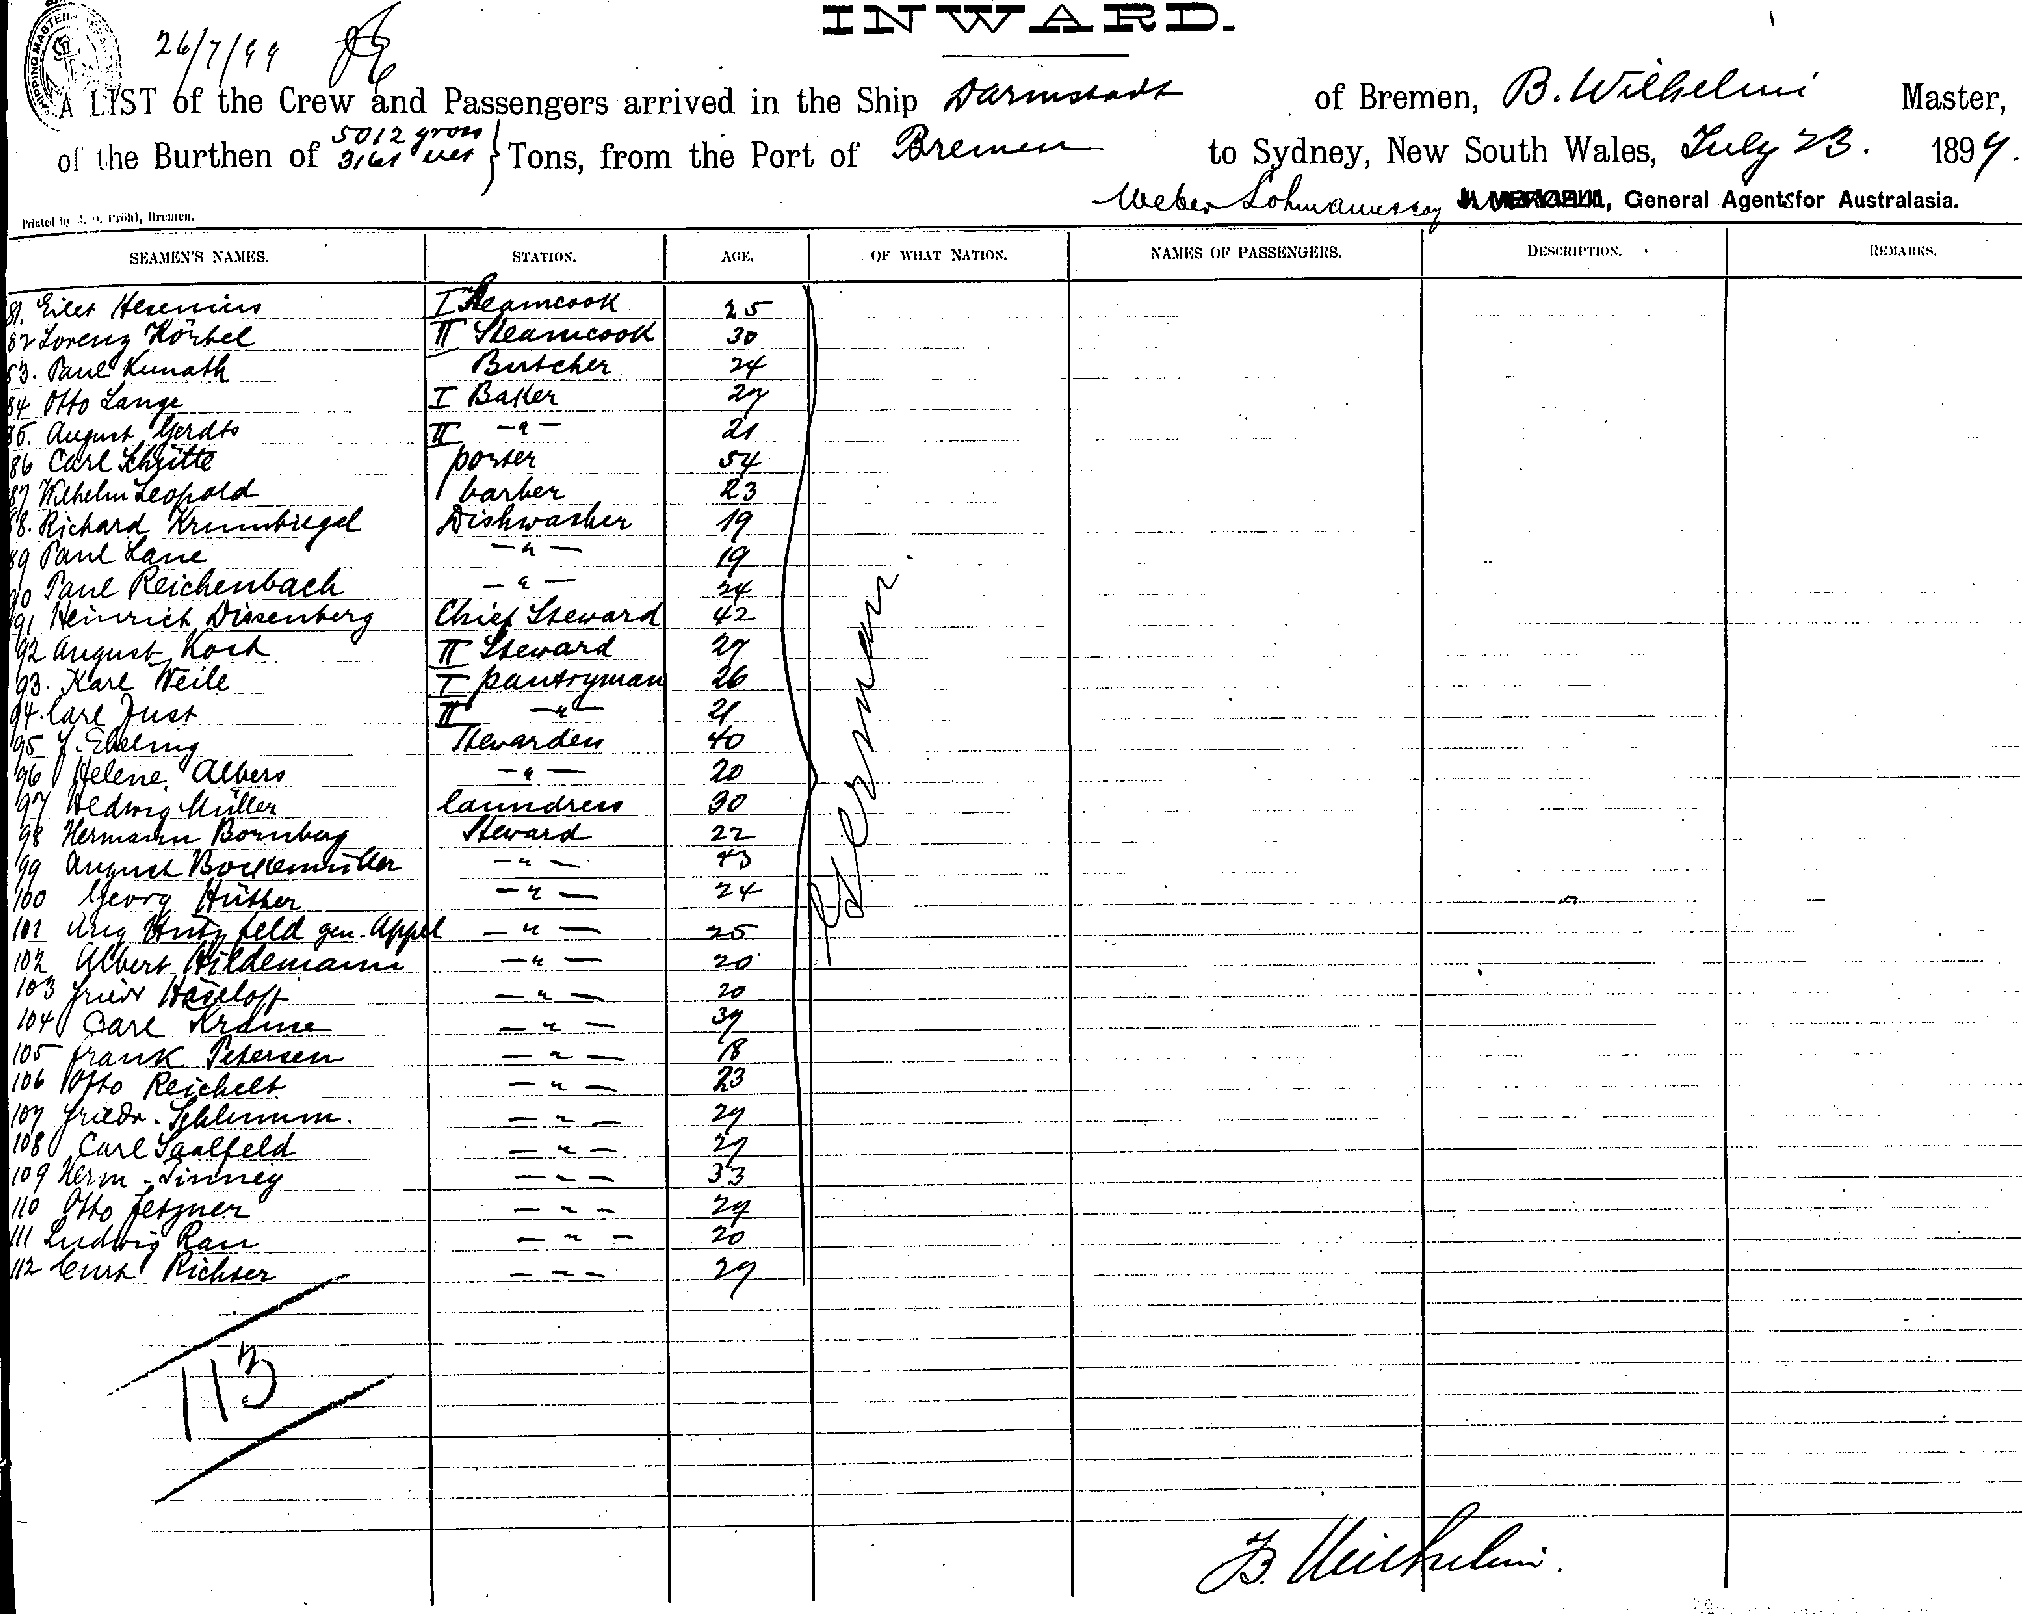 INWARD.
26/7/99
A LIST of the Crew and Passengers arrived in the Ship Darmstadt of Bremen, B. Wilhelmi Master,
of the Burthen of 5012 gross 3161 net } Tons, from the Port of Bremen to Sydney, New South Wales, July 23. 1899.
Weber Lohmann & Coy General Agents for Australasia.
Printed by Bremen.
SEAMEN'S NAMES. STATION. AGE. OF WHAT NATION. NAMES OF PASSENGERS. DESCRIPTION. REMARKS.
81. Eilert Hesenius I Steamcook 25
82 Lorenz Körbel II Steamcook 30
83. Paul Kunath Butcher 24
84 Otto Lange I Baker 27
85. August Gerdts II —"— 21
86 Carl Schütte porter 54
87 Wilhelm Leopold barber 23
88. Richard Krumbiegel Dishwasher 19
89 Paul Lane —"— 19
90 Paul Reichenbach —"— 24
91 Heinrich Dissenberg Chief Steward 42
92 August Koch II Steward 27
93. Karl Weile I pantryman 26
94. Carl Just II —"— 21
95 J. Ebeling Stewardess 40
96 Helene Albers —"— 20
97 Hedwig Müller laundress 30
98 Hermann Bornberg Steward 22
99 August Bockemüller —"— 43
100 Georg Hüther —"— 24
101 Aug Hutzfeld gen. Appel —"— 25
102 Albert Hildemann —"— 20
103 Friedr Haseloff —"— 20
104 Carl Krause —"— 37
105 Frank Petersen —"— 18
106 Otto Reichelt —"— 23
107 Friedr. Schlumm. —"— 27
108 Carl Saalfeld —"— 27
109 Herm. Tinney —"— 33
110 Otto Fetzner —"— 29
111 Ludwig Rau —"— 20
112 Curt Richter —"— 27
German
113
B. Wilhelmi.